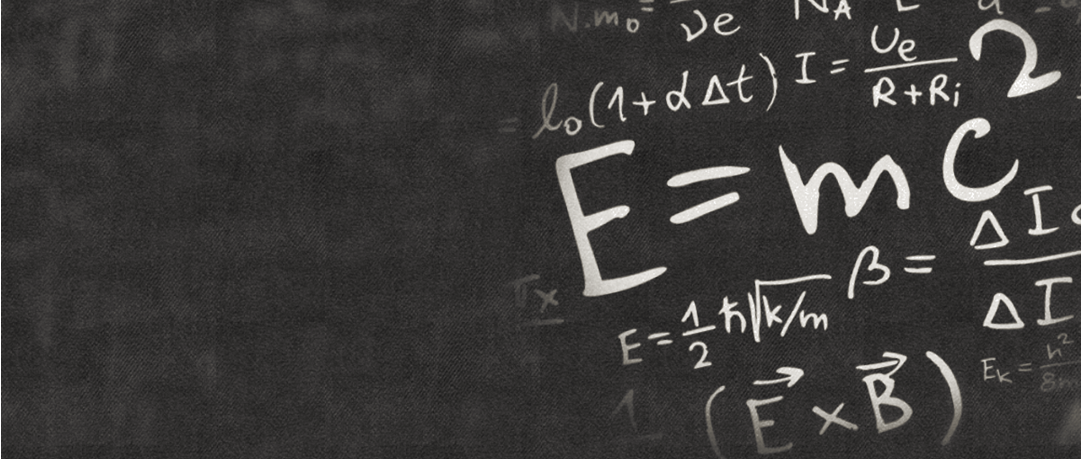 N.m₀ =
νe
N_A
= l₀(1+αΔt)
I = Ue / R+Ri
E = mc²
β = ΔIc / ΔI
E = 1/2 ħ√k/m
Ek = h² / 8m
(E⃗ × B⃗)